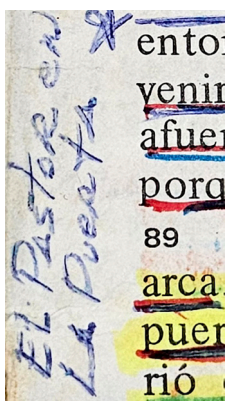 El Pastor en
La Puerta
entor
venir
afuer
porq
89
arca
puer
rió